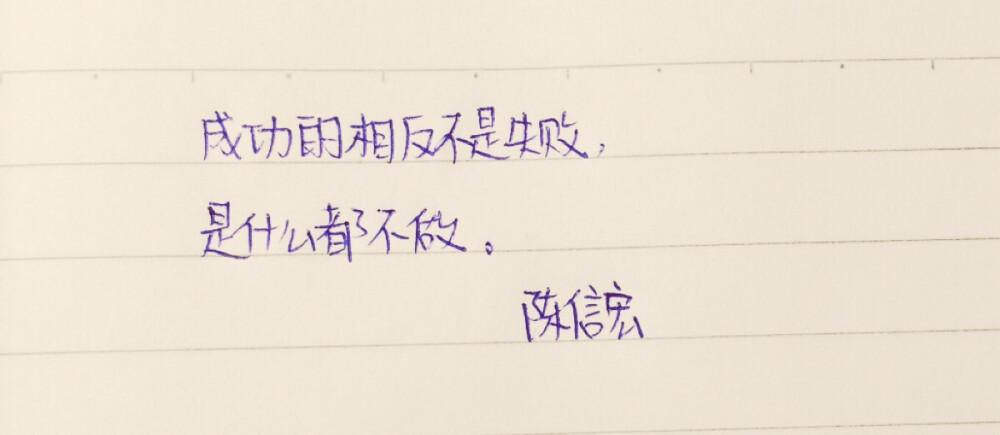 成功的相反不是失败，
是什么都不做。
陈信宏